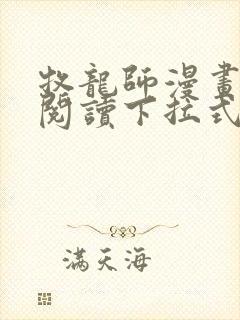 牧龍師漫畫
閱讀下拉式
滿天海